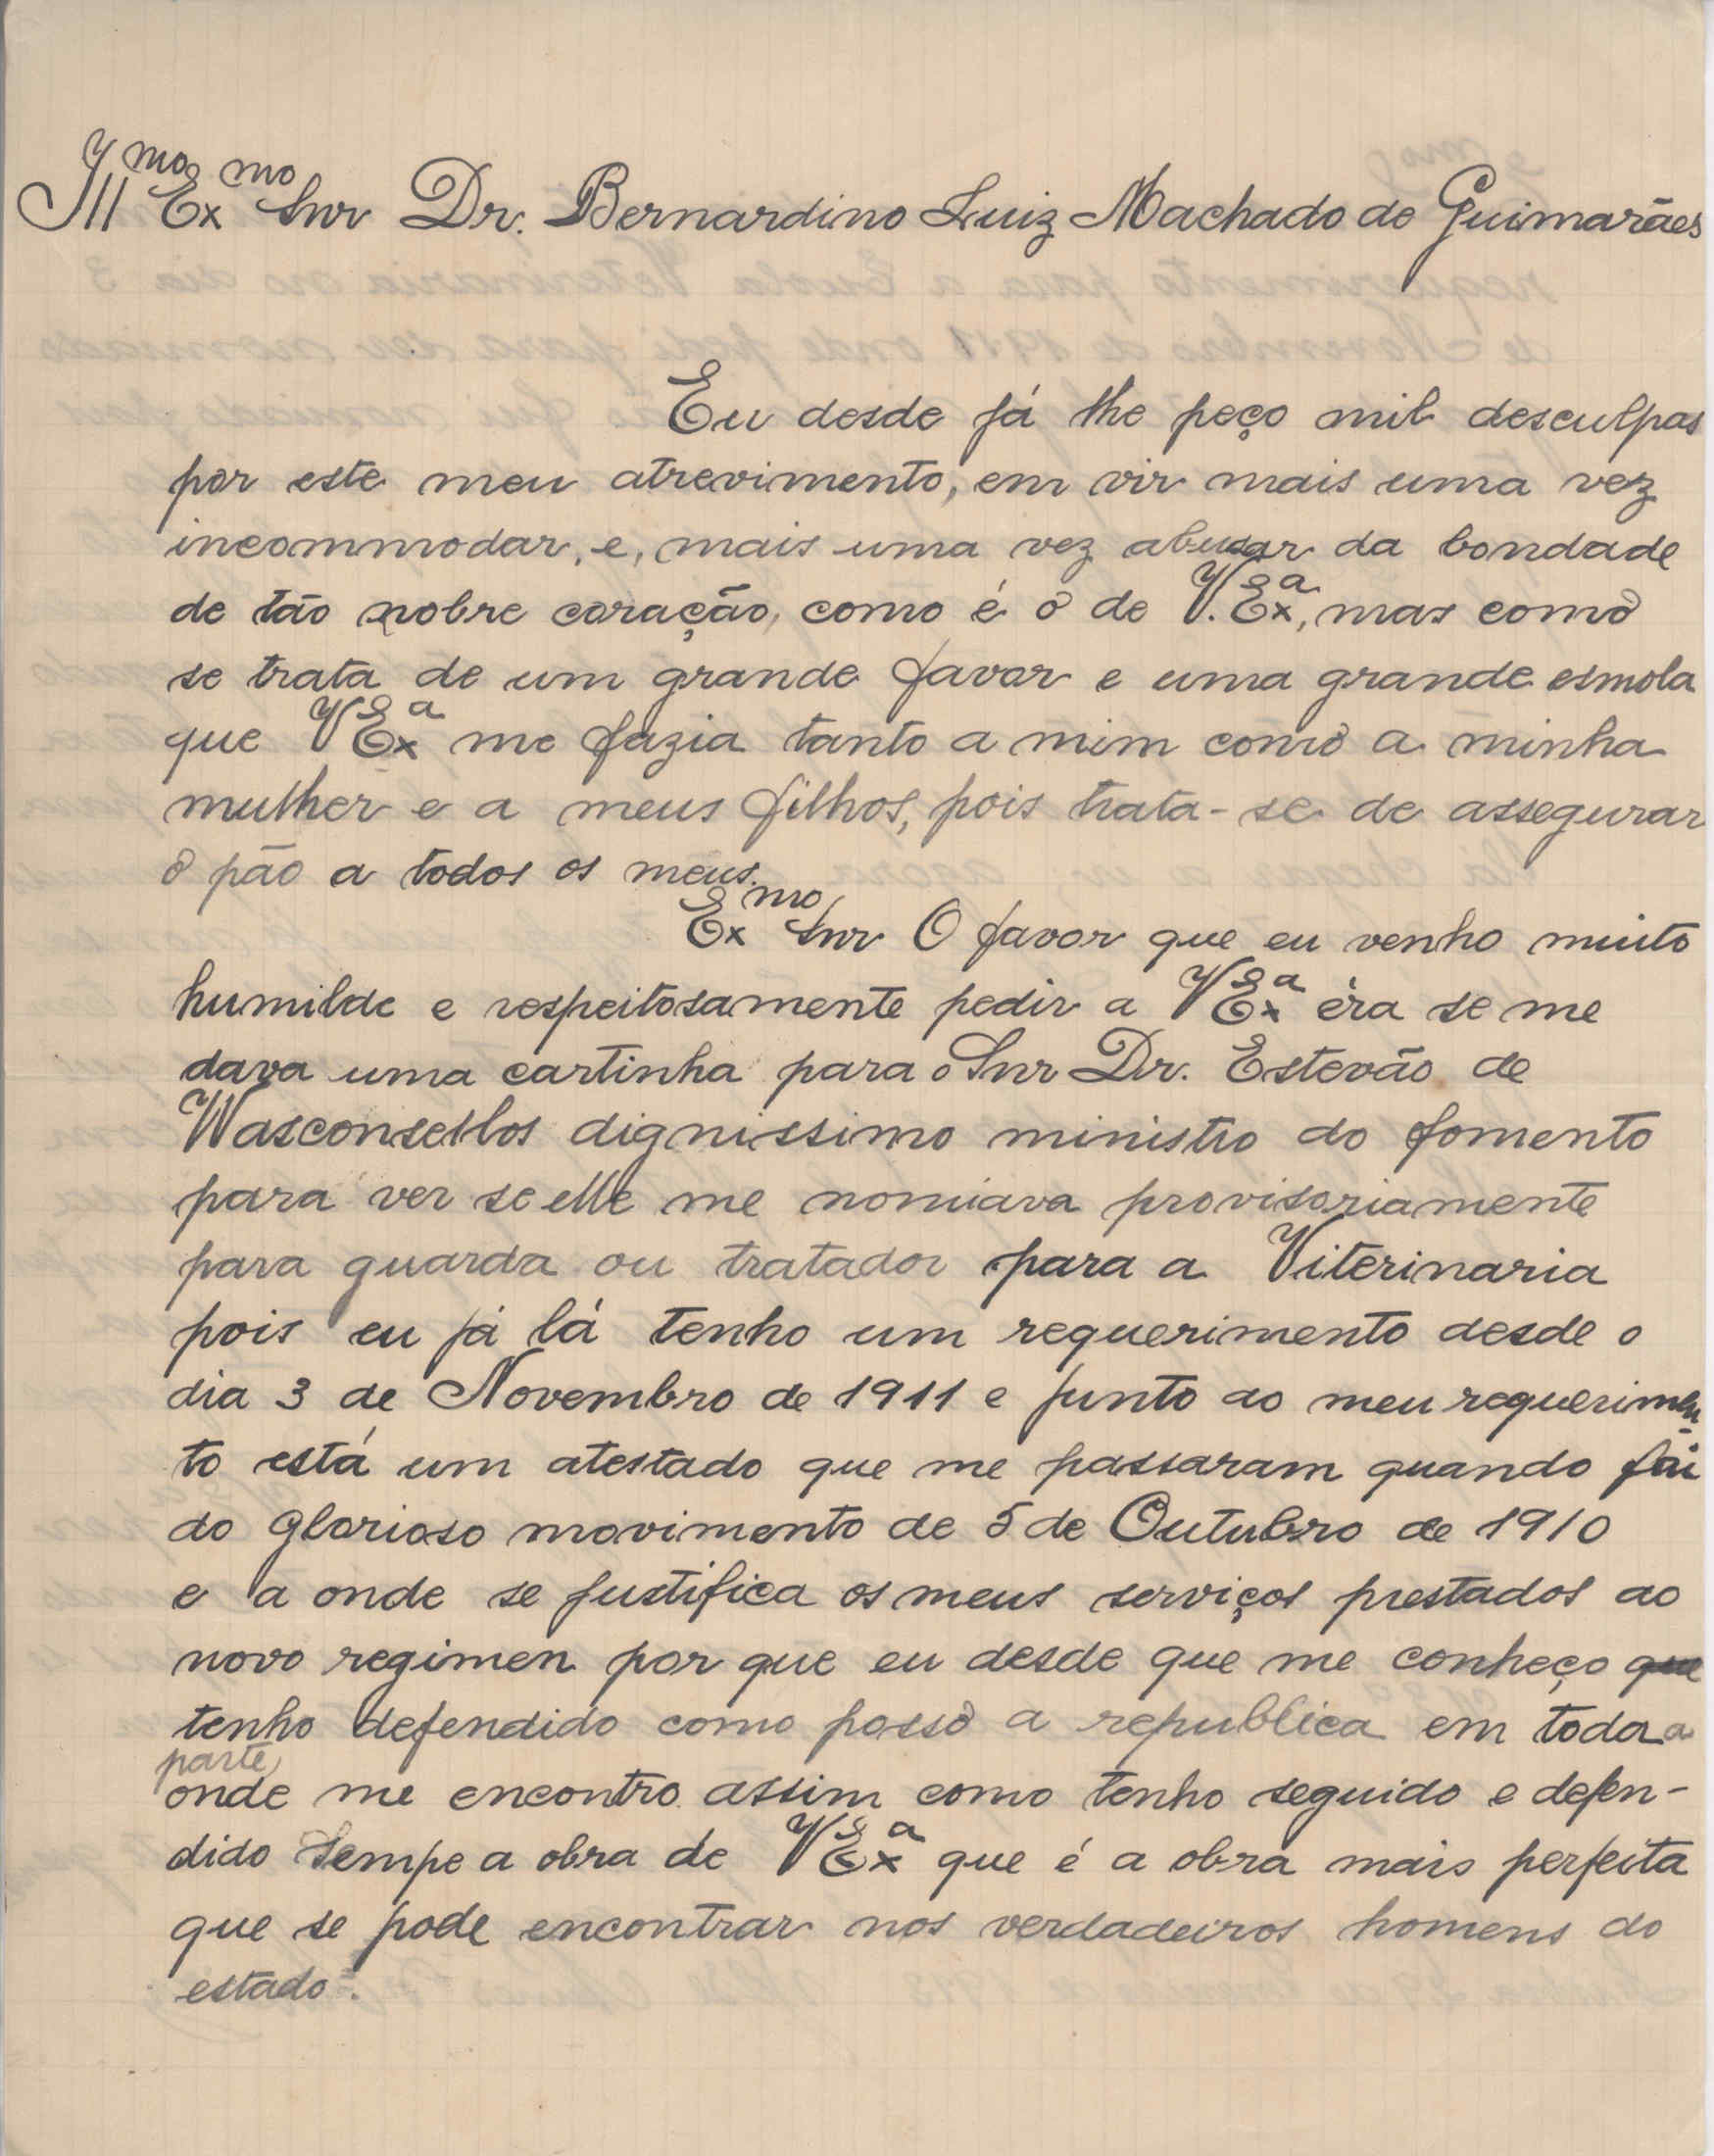 Illmo Exmo Snr Dr. Bernardino Luiz Machado de Guimarães
Eu desde já lhe peço mil desculpas
por este meu atrevimento, em vir mais uma vez
incommodar, e, mais uma vez abusar da bondade
de tão nobre coração, como é o de V. Exa, mas como
se trata de um grande favor e uma grande esmola
que V Exa me fazia tanto a mim como a minha
mulher e a meus filhos, pois trata-se de assegurar
o pão a todos os meus.
Exmo Snr O favor que eu venho muito
humilde e respeitosamente pedir a V Exa éra se me
dava uma cartinha para o Snr Dr. Estevão de
Wasconsellos dignissimo ministro do fomento
para ver se elle me nomiava provisoriamente
para guarda ou tratador para a Viterinaria
pois eu já lá tenho um requerimento desde o
dia 3 de Novembro de 1911 e junto ao meu requerimen-
to está um atestado que me passaram quando foi
do glorioso movimento de 5 de Outubro de 1910
e a onde se justifica os meus serviços prestados ao
novo regimen por que eu desde que me conheço que
tenho defendido como posso a republica em toda a
parte
onde me encontro assim como tenho seguido e defen-
dido sempe a obra de V Exa que é a obra mais perfeita
que se pode encontrar nos verdadeiros homens do
estado.